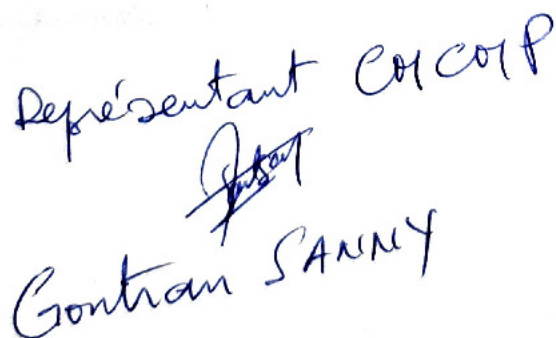 Représentant COICOIP
Gontran SANNY